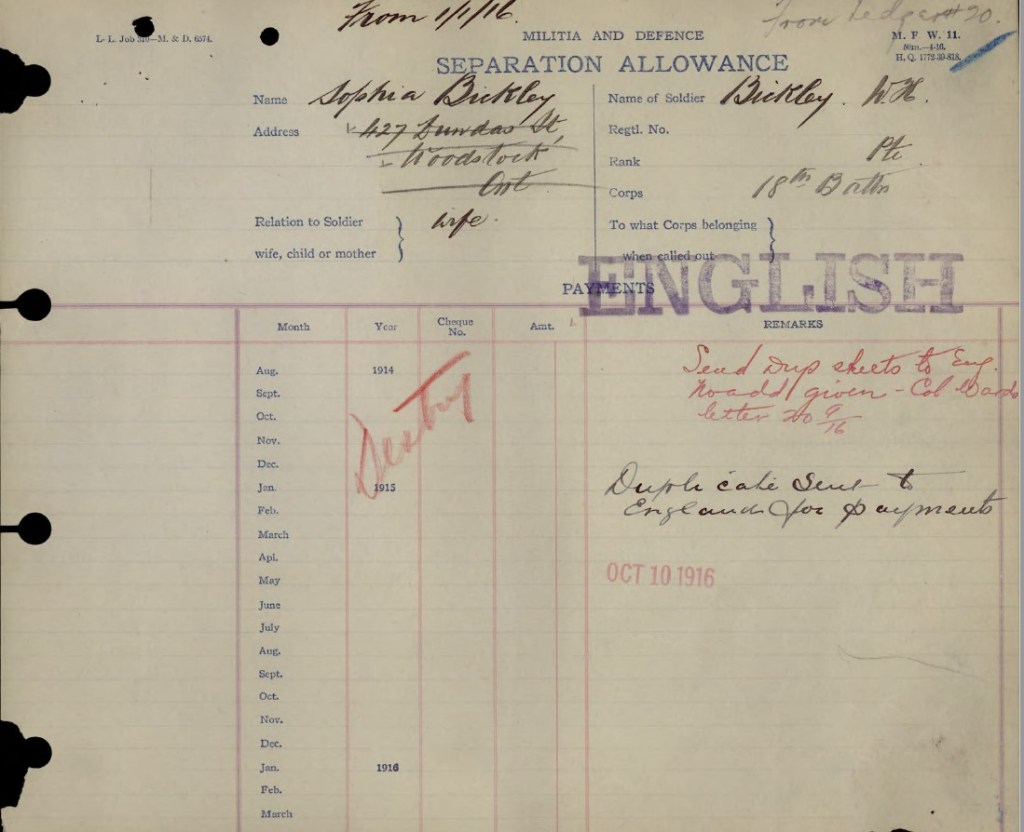 From 1/1/16.
From Ledger # 20.
L. L. Job 310—M. & D. 6574.
MILITIA AND DEFENCE
M. F. W. 11.
50m.—4-16.
H. Q. 1772-39-818.
SEPARATION ALLOWANCE
Name Sophia Bickley
Name of Soldier Bickley. W. H.
Address 427 Dundas St,
Woodstock
Ont
Regtl. No.
Rank Pte
Corps 18th Battn
Relation to Soldier
wife, child or mother
wife.
To what Corps belonging
when called out
ENGLISH
PAYMENTS
Month Year Cheque No. Amt. REMARKS
Aug. 1914
Send Dup sheets to Eng.
No add given - Col Wards
letter 20 9/16
Sept.
Oct.
Nov.
Dec.
Jan. 1915
Duplicate Sent to
England for payments
Feb.
March
Apl.
May
OCT 10 1916
June
July
Aug.
Sept.
Oct.
Nov.
Dec.
Jan. 1916
Feb.
March